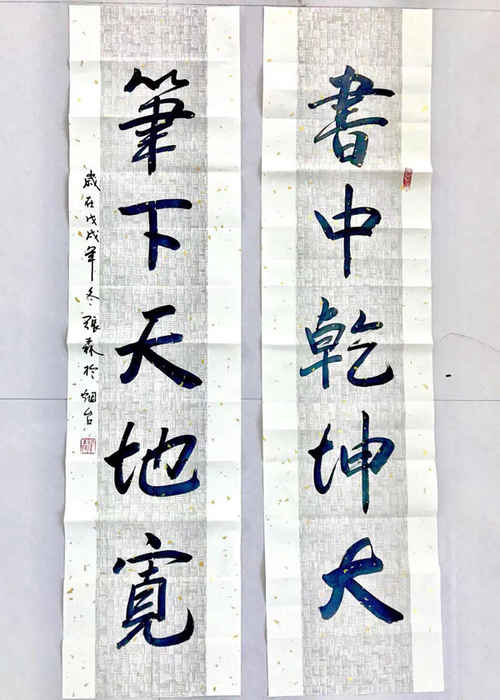 書中乾坤大
筆下天地寬
歲在戊戌年冬張森於烟台